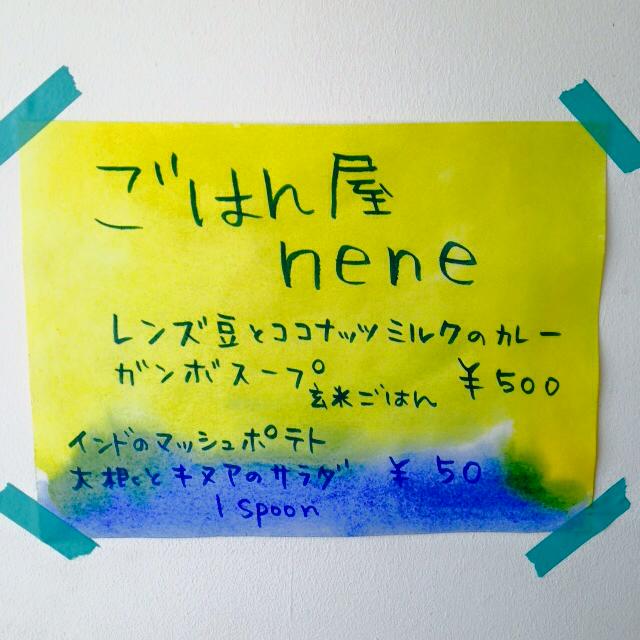 ごはん屋
nene
レンズ豆とココナッツミルクのカレー
ガンボスープ ¥500
玄米ごはん
インドのマッシュポテト
大根とキヌアのサラダ ¥50
1 spoon